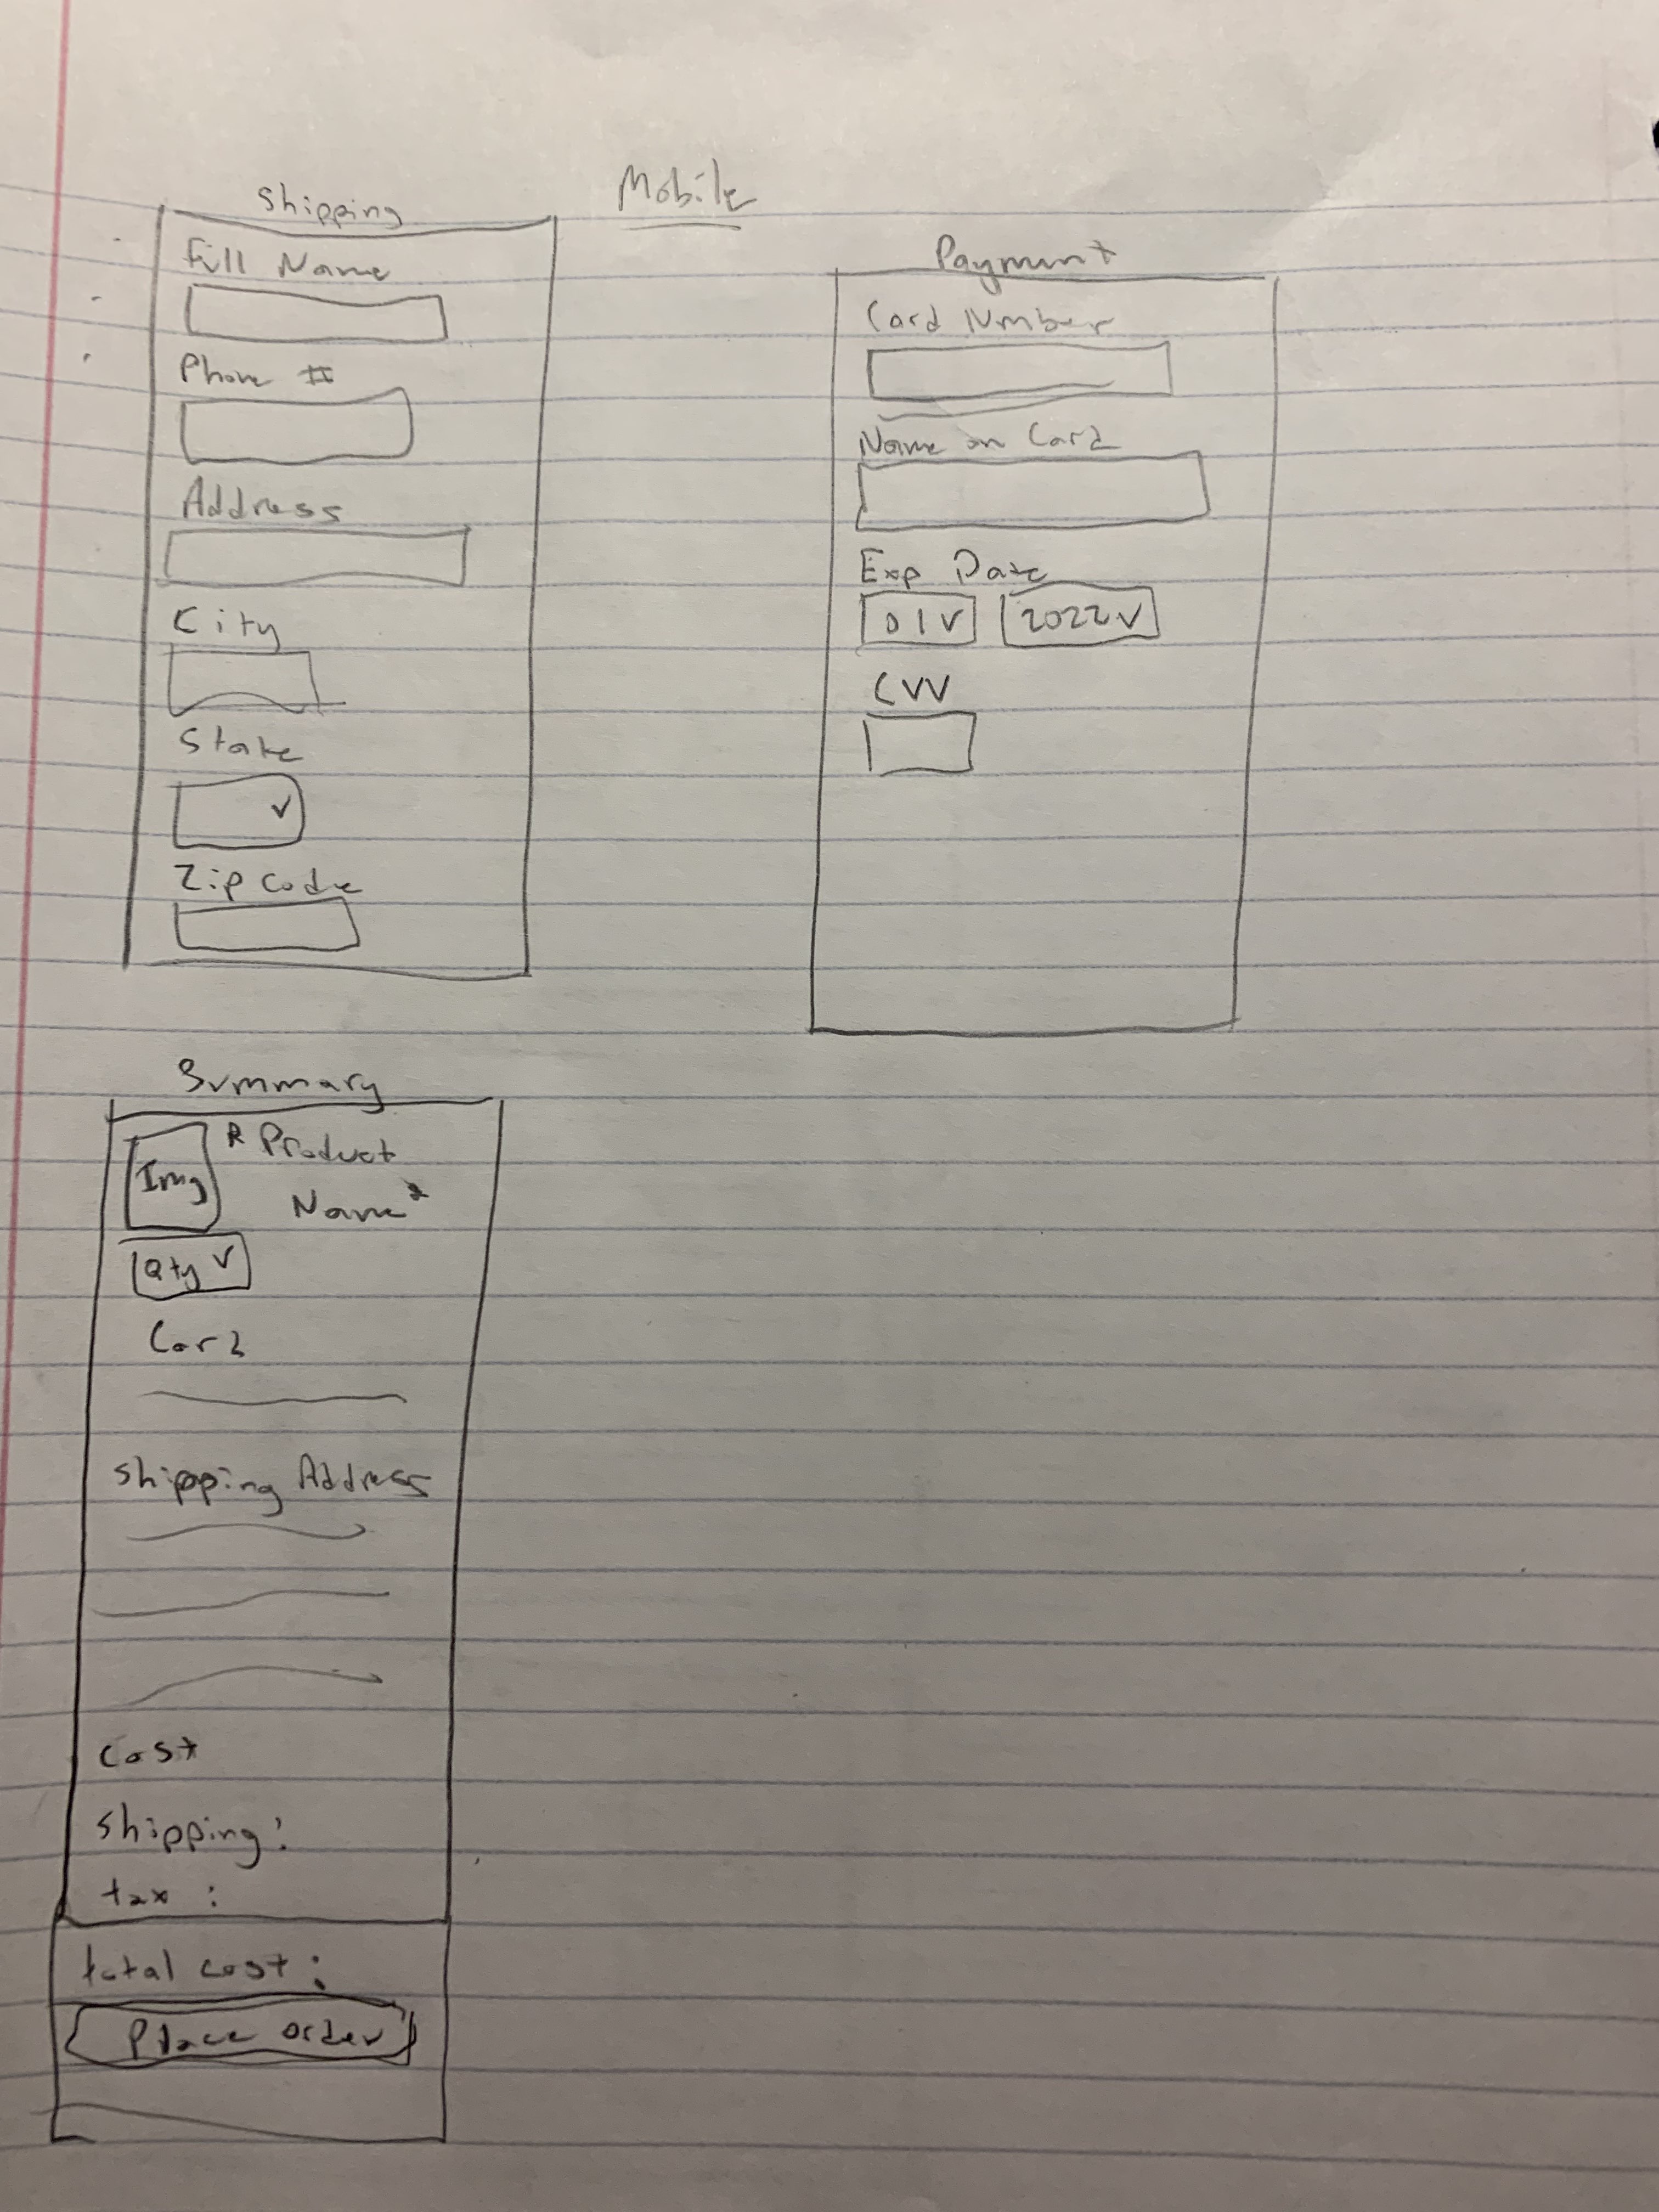 Mobile
Shipping
Full Name
Phone #
Address
City
State
Zip code
Payment
Card Number
Name on Card
Exp Date
01 2022
CVV
Summary
Img
"Product
Name"
Qty
Card
Shipping Address
Cost
Shipping:
tax :
total cost :
Place order